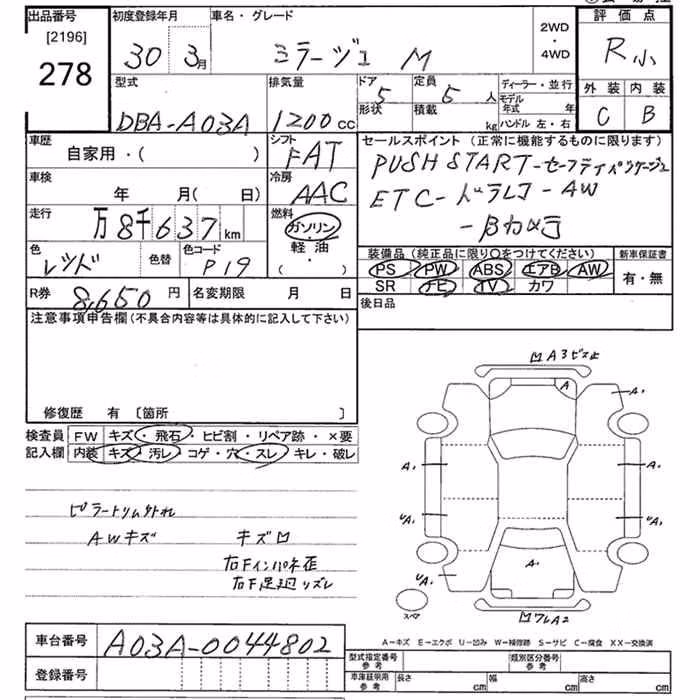 出品番号
[2196]
278
初度登録年月
30 3月
車名・グレード
ミラージュ M
2WD
・
4WD
評価点
R小
外装 内装
C B
型式
DBA-A03A
排気量
1200cc
ドア
5
形状
定員
5人
積載
kg
ディーラー・並行
モデル年式 年
ハンドル 左・右
車歴
自家用・( )
シフト
FAT
車検
年 月( 日)
冷房
AAC
走行
万8千637km
燃料
ガソリン
・
軽油
・
( )
色
レッド
色替
色コード
P19
R券
8,650円
名変期限 月 日
セールスポイント (正常に機能するものに限ります)
PUSH START-セーフティパッケージ
ETC-ドラレコ-AW
-Bカメラ
装備品(純正品に限り○をつけてください)
PS PW ABS エアB AW
SR ナビ TV カワ
新車保証書
有・無
後日品
注意事項申告欄(不具合内容等は具体的に記入して下さい)
修復歴 有 〔箇所 〕
検査員
記入欄
FW キズ・飛石・ヒビ割・リペア跡・×要
内装 キズ・汚レ・コゲ・穴・スレ・キレ・破レ
ピラートリム外れ
AWキズ キズM
右Fインパネ歪
右F足廻リズレ
MA3ビス止
A
A1
A1
A1
UA1
UA1
A1
UA1
MワレA2
スペア
A〜キズ E〜エクボ U〜凹み W〜補修跡 S〜サビ C〜腐食 XX〜交換済
車台番号
A03A-0044802
登録番号
型式指定番号
参考
類別区分番号
参考
車庫証明用
参考
長さ cm
幅 cm
高さ cm